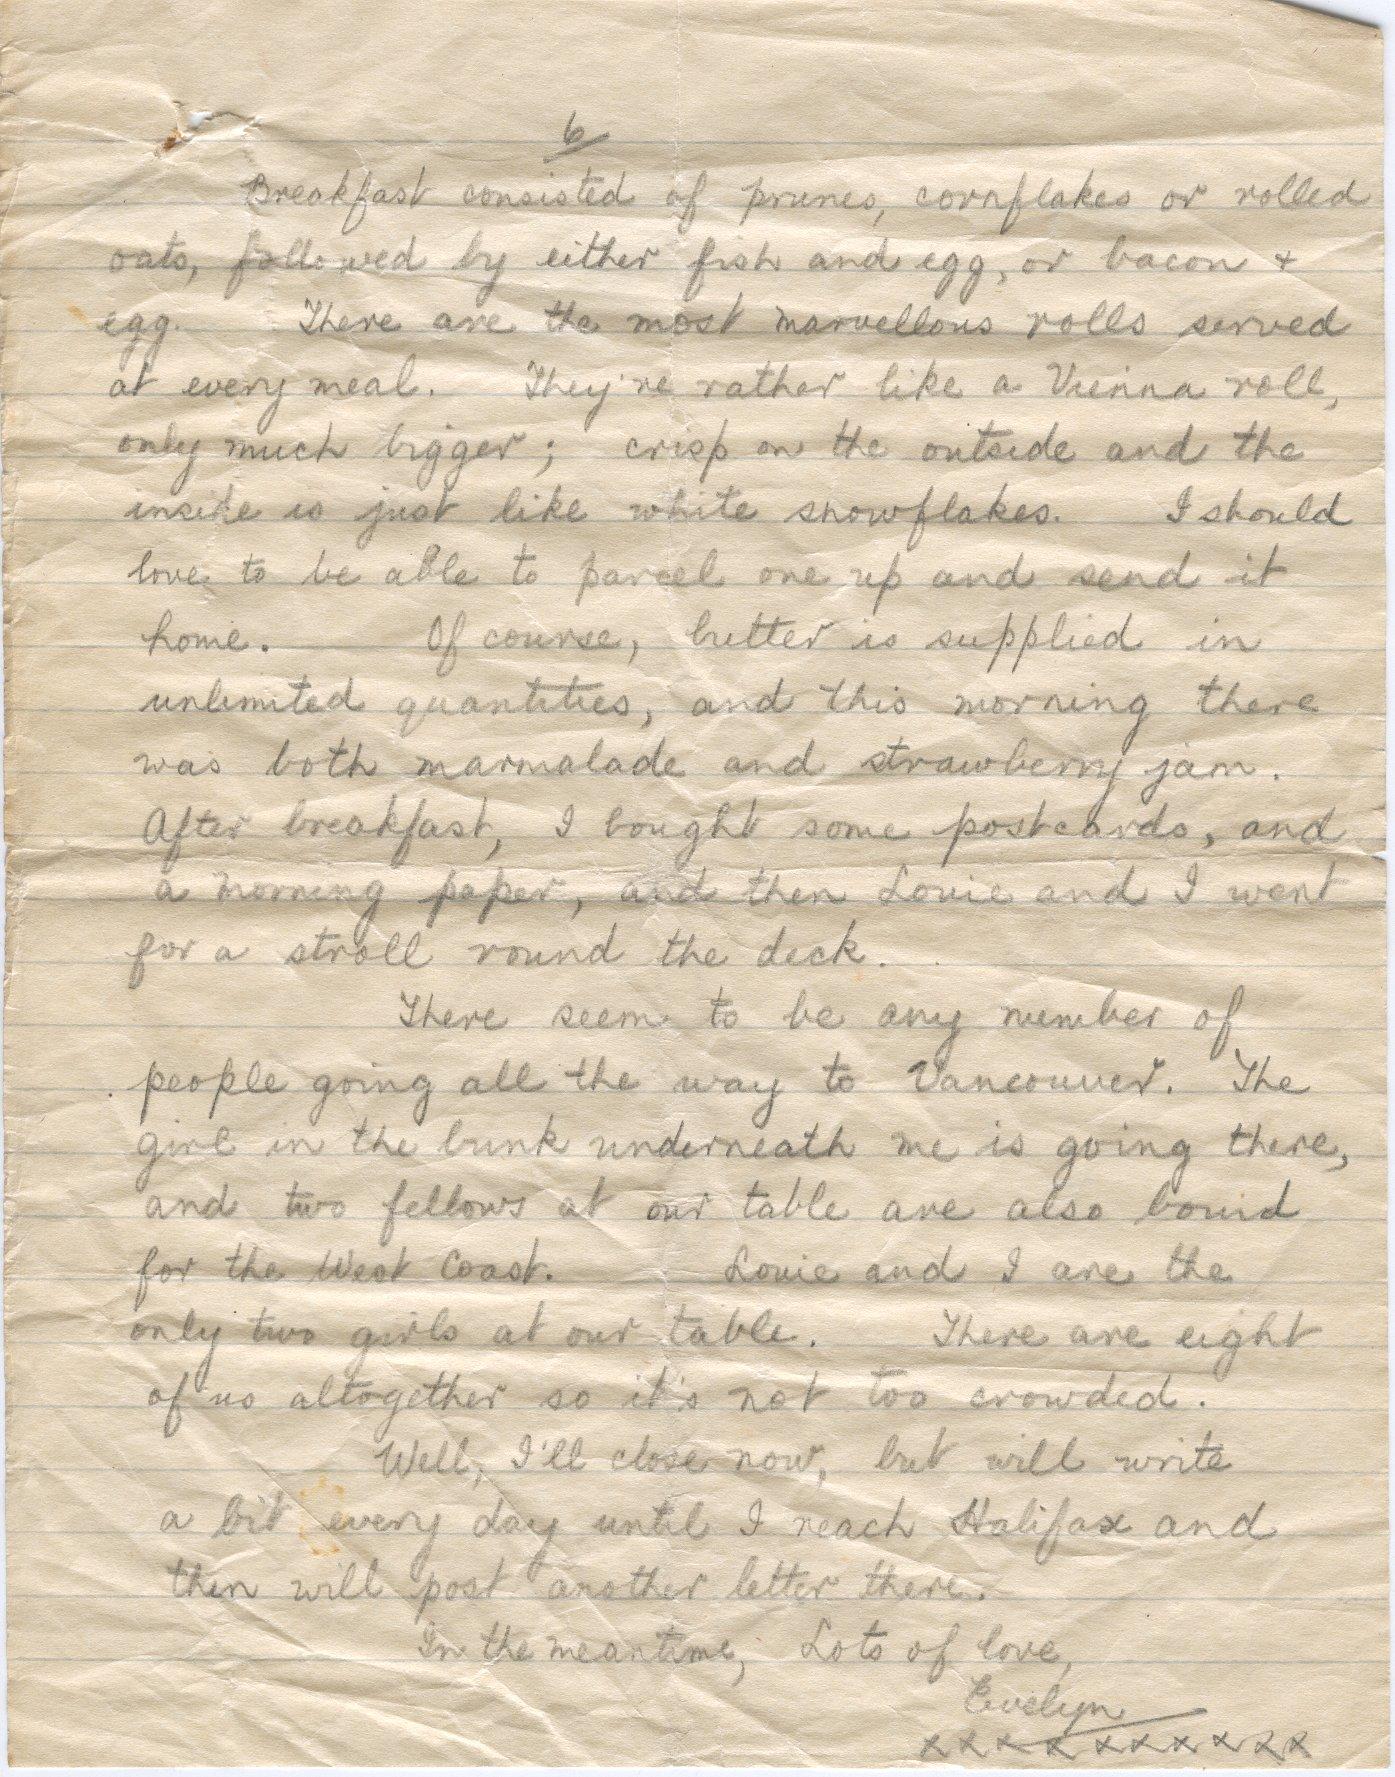 6
Breakfast consisted of prunes, cornflakes or rolled
oats, followed by either fish and egg, or bacon +
egg. There are the most marvellous rolls served
at every meal. They're rather like a Vienna roll,
only much bigger; crisp on the outside and the
inside is just like white snowflakes. I should
love to be able to parcel one up and send it
home. Of course, butter is supplied in
unlimited quantities, and this morning there
was both marmalade and strawberry jam.
After breakfast, I bought some postcards, and
a morning paper, and then Louie and I went
for a stroll round the deck.
There seem to be any number of
people going all the way to Vancouver. The
girl in the bunk underneath me is going there,
and two fellows at our table are also bound
for the West Coast. Louie and I are the
only two girls at our table. There are eight
of us altogether so it's not too crowded.
Well, I'll close now, but will write
a bit every day until I reach Halifax and
then will post another letter there.
In the meantime, Lots of love,
Evelyn
xxxxxxxxxx